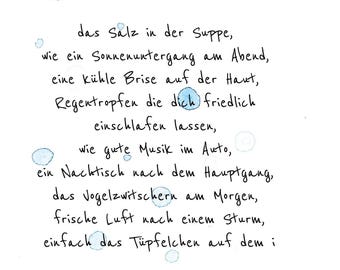 das Salz in der Suppe,
wie ein Sonnenuntergang am Abend,
eine kühle Brise auf der Haut,
Regentropfen die dich friedlich
einschlafen lassen,
wie gute Musik im Auto,
ein Nachtisch nach dem Hauptgang,
das Vogelzwitschern am Morgen,
frische Luft nach einem Sturm,
einfach das Tüpfelchen auf dem i